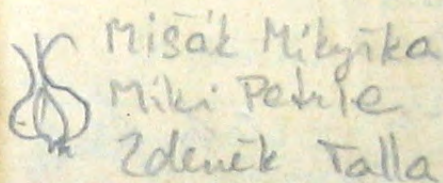 Mišák Mikyška
Miki Petrle
Zdeněk Talla